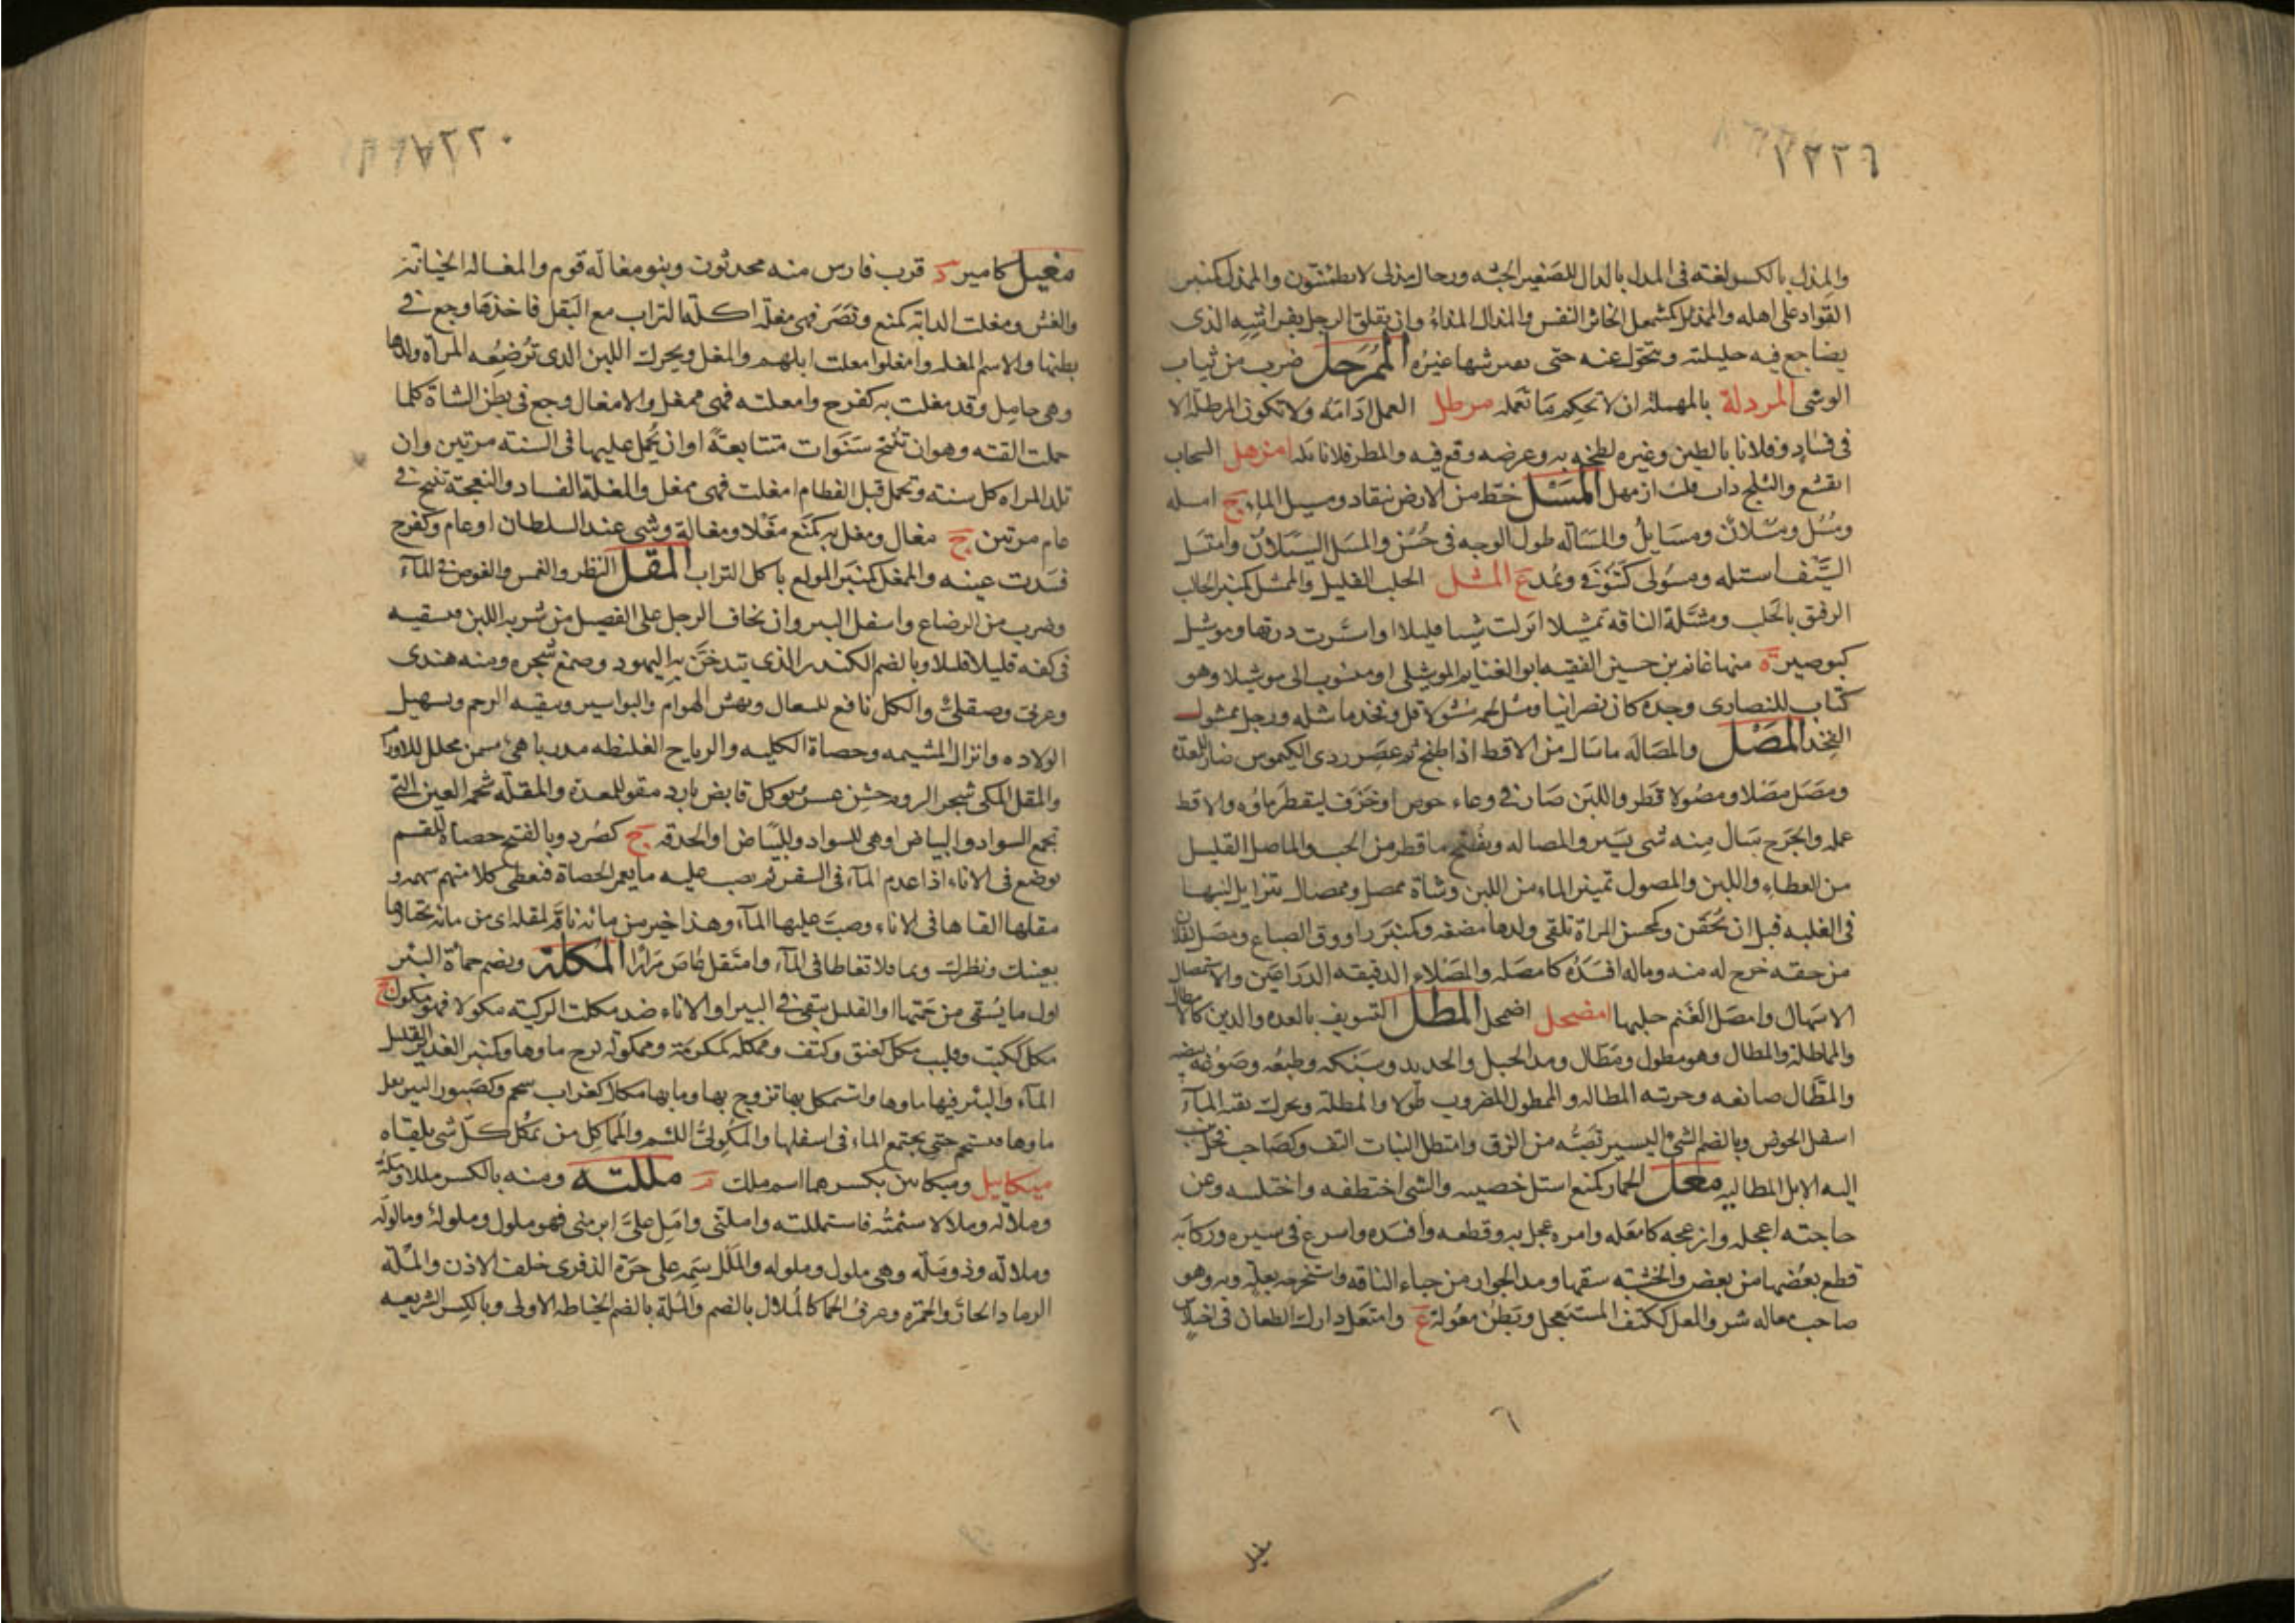 ١٢٢٦
والمذل بالكسر لغته فى المدل بالدال للصغير الجثه ورجال مذلى لا يطمئنون والممذل كمنبر
القواد على اهله والممذئل كمشمعل الخاثر النفس والمذال المذاء وان يقلق الرجل بفراشه الذى
يضاجع فيه حليلته ويتحول عنه حتى يفترشها غيره الممرجل ضرب من ثياب
الوشى المردلة بالمهملة ان لا تحكم ما تعمله مرطل العمل ادامه ولا تكون المرطلة الا
فى فساد وفلانا بالطين وغيره لطخه به وعرضه وقع فيه والمطر فلانا بله امزهل السحاب
انقشع والثلج ذاب فك ازمهل المسل خط من الارض ينقاد ومسيل الماء ج امسله
ومسل ومسلان ومسايل والمساله طول الوجه فى حسن والمسل السيلان وامتسل
السيف استله ومسولى كتنوفى وتمد ع المشل الحلب القليل والممشل كمنبر الحالب
الرفق بالحلب ومشلة الناقه تمشيلا انزلت شيا قليلا او انتشرت درتها وموشيل
كبوصير ه منها غانم بن حسين الفقيه ابو الغنايم الموشيلى او منسوب الى موشيلا وهو
كتاب للنصارى وجده كان نصرانيا ومشل لحمه مشولا قل وفخذ ماشله ورجل ممشول
الفخذ المصل والمصاله ما سال من الاقط اذا طبخ ثم عصر ردى الكيموس ضار للمعدة
ومصل مصلا ومصولا قطر واللبن صار فى وعاء خوص او خزف ليقطر ماؤه والاقط
عمله والجرح سال منه شى يسير والمصاله ويفتح ما قطر من الحب والماصل القليل
من العطاء واللبن والمصول تميز الماء من اللبن وشاة ممصل وممصال يتزايل لبنها
فى العلبه قبل ان تحقن وكمحسن المراة تلقى ولدها مضغه وكمنبر راووق الصباغ ومصل لفلان
من حقه خرج له منه وماله افسده كامصله والمصلاء الدقيقه الذراعين والاستمصال
الاسهال وامصل الغنم حلبها امضحل اضمحل المطل التسويف بالعده والدين كالامتطال
والمماطلة والمطال وهو مطول ومطال ومد الحبل والحديد وسبكه وطبعه وصوغه بيضه
والمطال صانعه وحرفته المطاله والممطول المضروب طولا والمطلة ويحرك بقيه الماء
اسفل الحوض وبالضم الشى اليسير تصبه من الزق وامتطل النبات التف وكصاحب فحل تنسب
اليه الابل الماطليه معل الحمار كمنع استل خصييه والشى اختطفه واختلسه وعن
حاجته اعجله وازعجه كامعله وامره عجل به وقطعه وافسده واسرع فى سيره وركابه
قطع بعضها من بعض والخشبه شقها ومد الحوار من حياء الناقه واستخرجه بعجله وبه وهو
صاحب معاله شر والمعل ككتف المستعجل وبطن معوله ع وامتعل دارك الطعان فى اختلاس
٦
مغيل
٢٢٠
مغيل كامير د قرب فارس منه محدثون وبنو مغاله قوم والمغاله الخيانة
والغش ومغلت الدابه كمنع ونصر فهى مغله اكلت التراب مع البقل فاخذها وجع فى
بطنها والاسم المغله وامغلوا مغلت ابلهم والمغل ويحرك اللبن الذى ترضعه المراه ولدها
وهى حامل وقد مغلت به كفرح وامغلته فهى ممغل والامغال وجع فى بطن الشاة كلما
حملت القته وهو ان تنتج سنوات متتابعة او ان يحمل عليها فى السنه مرتين وان
تلد المراه كل سنه وتحمل قبل الفطام امغلت فهى ممغل والمغلة الفساد والنعجة تنتج فى
عام مرتين ج مغال ومغل به كمنع مغلا ومغالة وشى عند السلطان او عام وكفرح
فسدت عينه والممغل كمنبر المولع باكل التراب المقل النظر والغمس والغوص فى الماء
وضرب من الرضاع واسفل البير وان يخاف الرجل على الفصيل من شربه اللبن فيسقيه
فى كفه قليلا قليلا وبالضم الكندر الذى تتدخن به اليهود وصمغ شجره ومنه هندى
وعربى وصقلى والكل نافع للسعال ونهش الهوام والبواسير وينقيه الرحم وتسهيل
الولاده وانزال المشيمه وحصاة الكليه والرياح الغليظه مدر باهى مسمن محلل للاورام
والمقل المكى شجر الدوم خشن عسر يوكل قابض بارد مقو للمعدة والمقلة شحم العين التى
تجمع السواد والبياض او هى السواد والبياض او الحدقه ج كصرد وبالفتح حصاة القسم
توضع فى الاناء اذا عدم الماء فى السفر ثم يصب عليه ما يغمر الحصاة فيعطى كلا منهم سهمه و
مقلها القاها فى الاناء وصب عليها الماء وهذا خير من مائه ناقه لمقله اى من مائه تختارها
بعينك ونظرك وتماقلا تغاطا فى الماء وامتقل غاص مرارا المكلة ويضم حمأة البئر
اول ما يستقى من جمتها او القليل يبقى فى البير او الاناء ضد مكلت الركيه مكولا فهو مكول ج
مكل ككتب وقليب مكل كعنق وكتف وممكله كمكرمة وممكوله نزح ماوها وكمنبر الغدير القليل
الماء والبئر فيها ماوها واستمكل بها تزوج بها وما بها مكال كغراب شحم وكصبور البير يقل
ماوها فيستجم حتى يجتمع الماء فى اسفلها والمكولى اللئيم والمماكل من تمكل كل شى يلقاه
ميكاييل وميكاين بكسرهما اسم ملك م مللته ومنه بالكسر مللا وملة
وملاله وملالا سئمته فاستمللته واملنى وامل على ابرمنى فهو ملول وملوله ومالوله
وملاله وذو ملة وهى ملول وملوله والملل سمه على حرة الذفرى خلف الاذن والملة
الرماد الحار والجمر وعرق الحما كالملال بالضم والملة بالضم الخياطه الاولى وبالكسر الشريعه